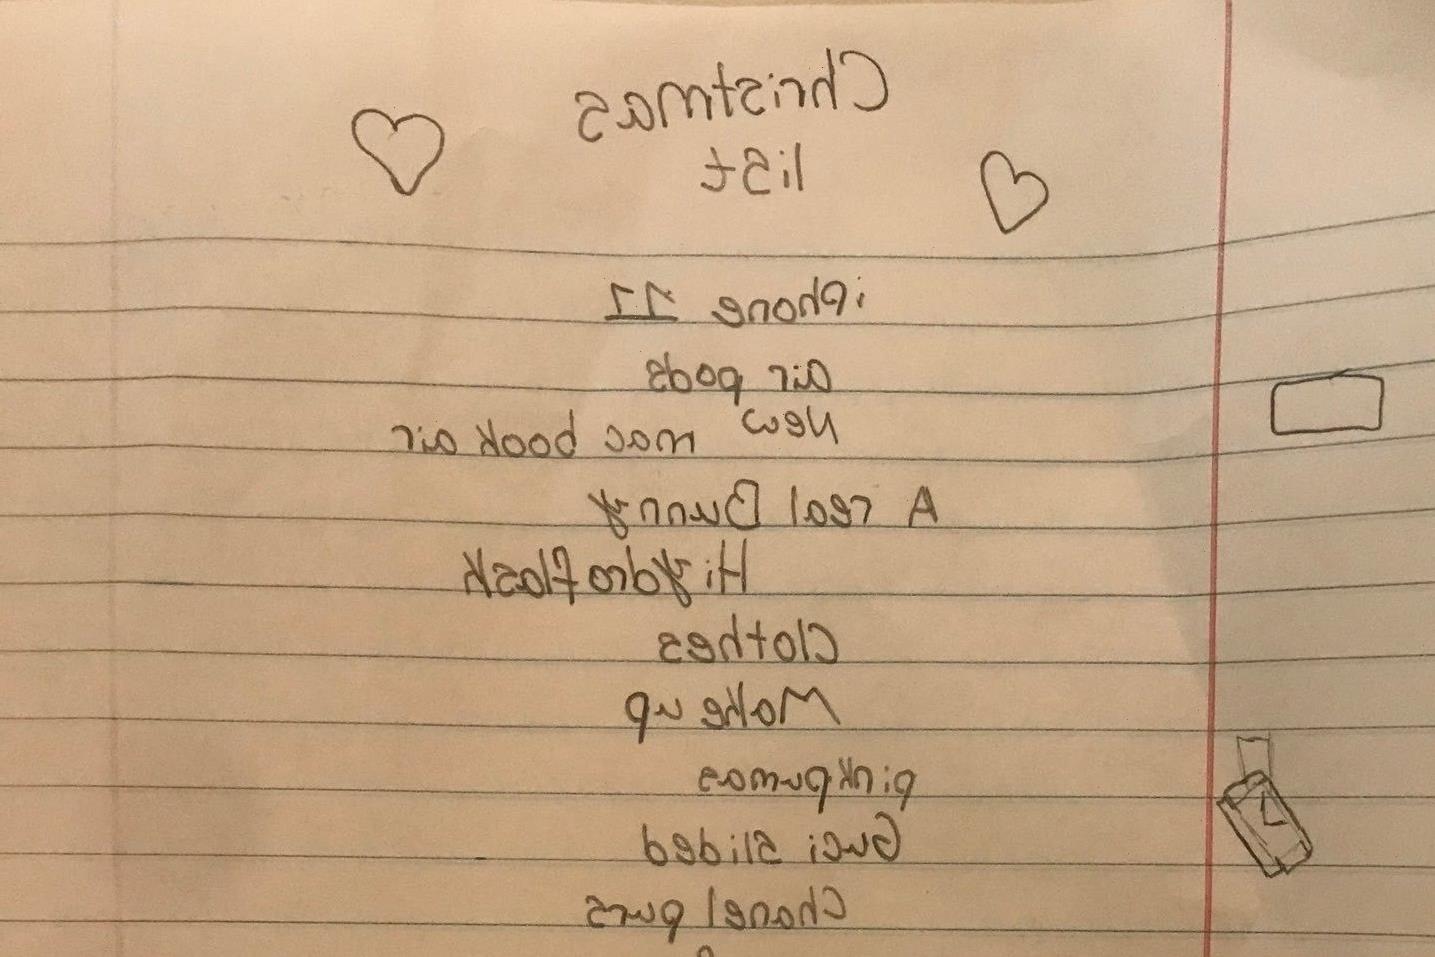 Christmas
list
iphone 11
air pods
new mac book air
A real Bunny
Hiydro flask
Clothes
Make up
pink pumas
Guci slided
Chanel purs